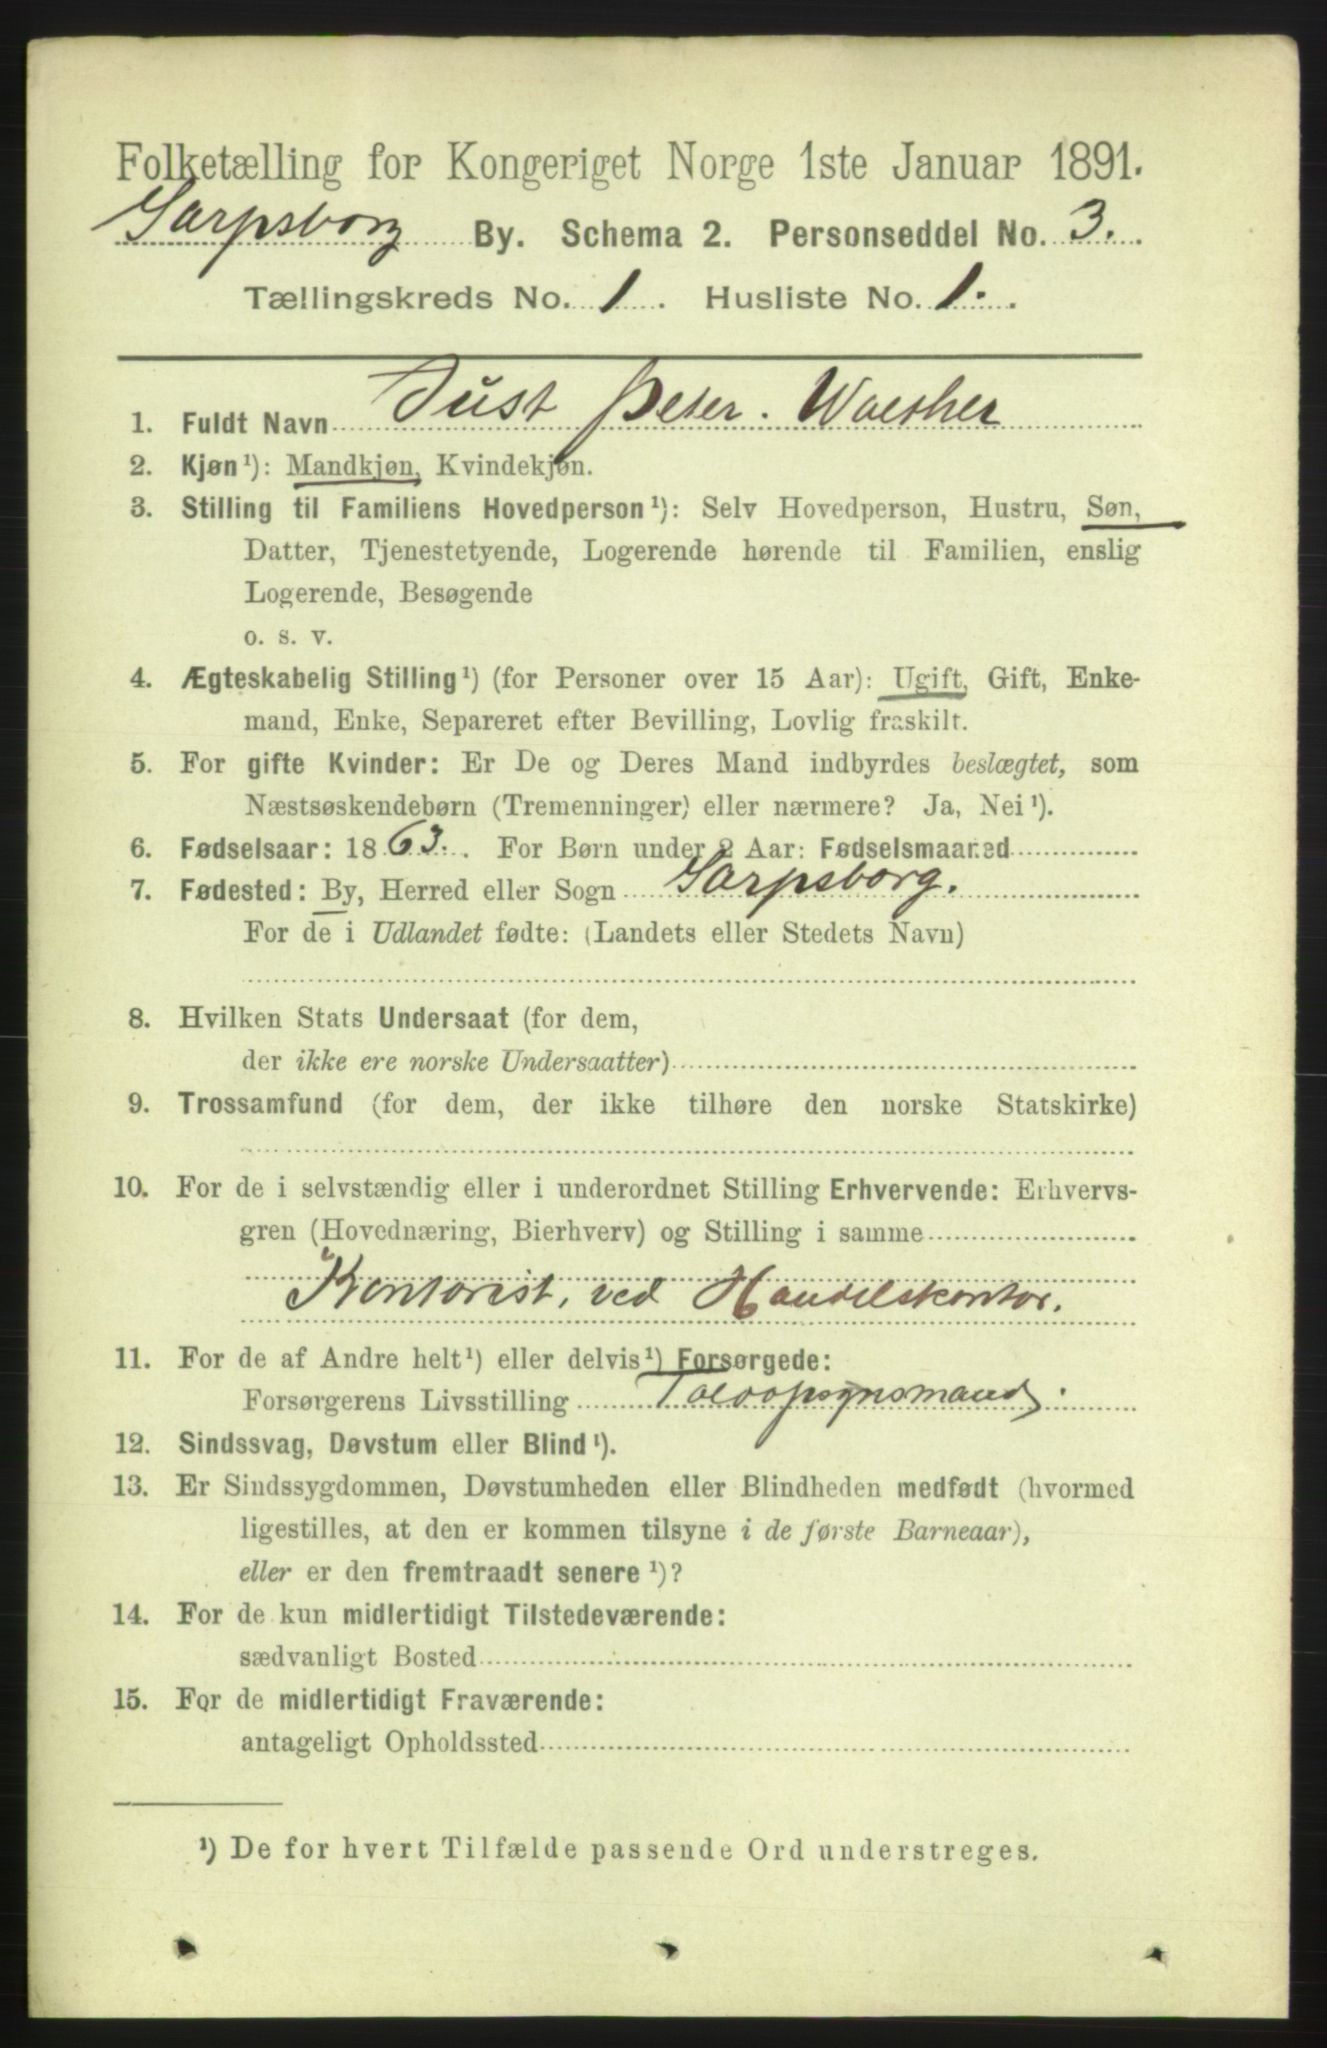 Folketælling for Kongeriget Norge 1ste Januar 1891.
Sarpsborg By. Schema 2. Personseddel No. 3.
Tællingskreds No. 1. Husliste No. 1.
1. Fuldt Navn Just Peter. Woelner
2. Kjøn¹): Mandkjøn, Kvindekjøn.
3. Stilling til Familiens Hovedperson¹): Selv Hovedperson, Hustru, Søn,
Datter, Tjenestetyende, Logerende hørende til Familien, enslig
Logerende, Besøgende
o. s. v.
4. Ægteskabelig Stilling¹) (for Personer over 15 Aar): Ugift, Gift, Enke-
mand, Enke, Separeret efter Bevilling, Lovlig fraskilt.
5. For gifte Kvinder: Er De og Deres Mand indbyrdes beslægtet, som
Næstsøskendebørn (Tremenninger) eller nærmere? Ja, Nei¹).
6. Fødselsaar: 1863. For Børn under 2 Aar: Fødselsmaaned
7. Fødested: By, Herred eller Sogn Sarpsborg.
For de i Udlandet fødte: (Landets eller Stedets Navn)
8. Hvilken Stats Undersaat (for dem,
der ikke ere norske Undersaatter)
9. Trossamfund (for dem, der ikke tilhøre den norske Statskirke)
10. For de i selvstændig eller i underordnet Stilling Erhvervende: Erhvervs-
gren (Hovednæring, Bierhverv) og Stilling i samme
Kontorist, ved Handelskontor.
11. For de af Andre helt¹) eller delvis¹) Forsørgede:
Forsørgerens Livsstilling Toldopsynsmand.
12. Sindssvag, Døvstum eller Blind¹).
13. Er Sindssygdommen, Døvstumheden eller Blindheden medfødt (hvormed
ligestilles, at den er kommen tilsyne i de første Barneaar),
eller er den fremtraadt senere¹)?
14. For de kun midlertidigt Tilstedeværende:
sædvanligt Bosted
15. For de midlertidigt Fraværende:
antageligt Opholdssted
¹) De for hvert Tilfælde passende Ord understreges.